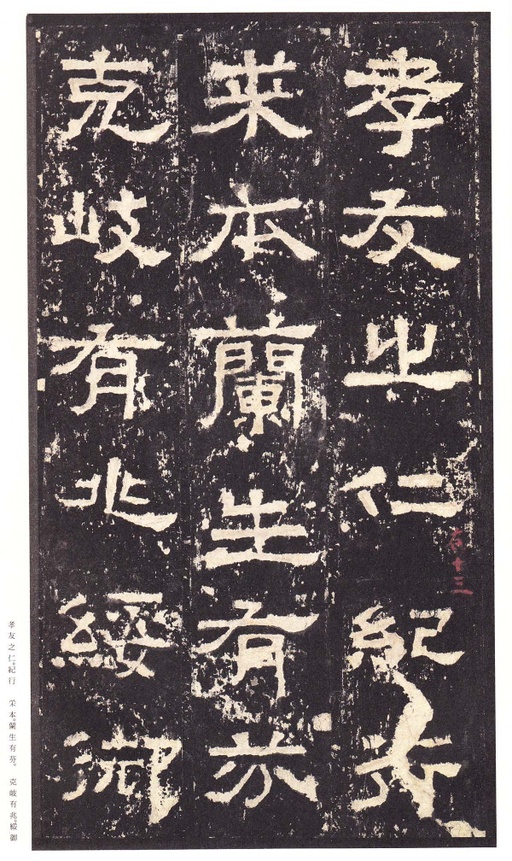 孝友之仁紀行
来本蘭生有芬
克岐有兆綏御
孝友之仁。紀行　来本。蘭生有芬。　克岐有兆。綏御